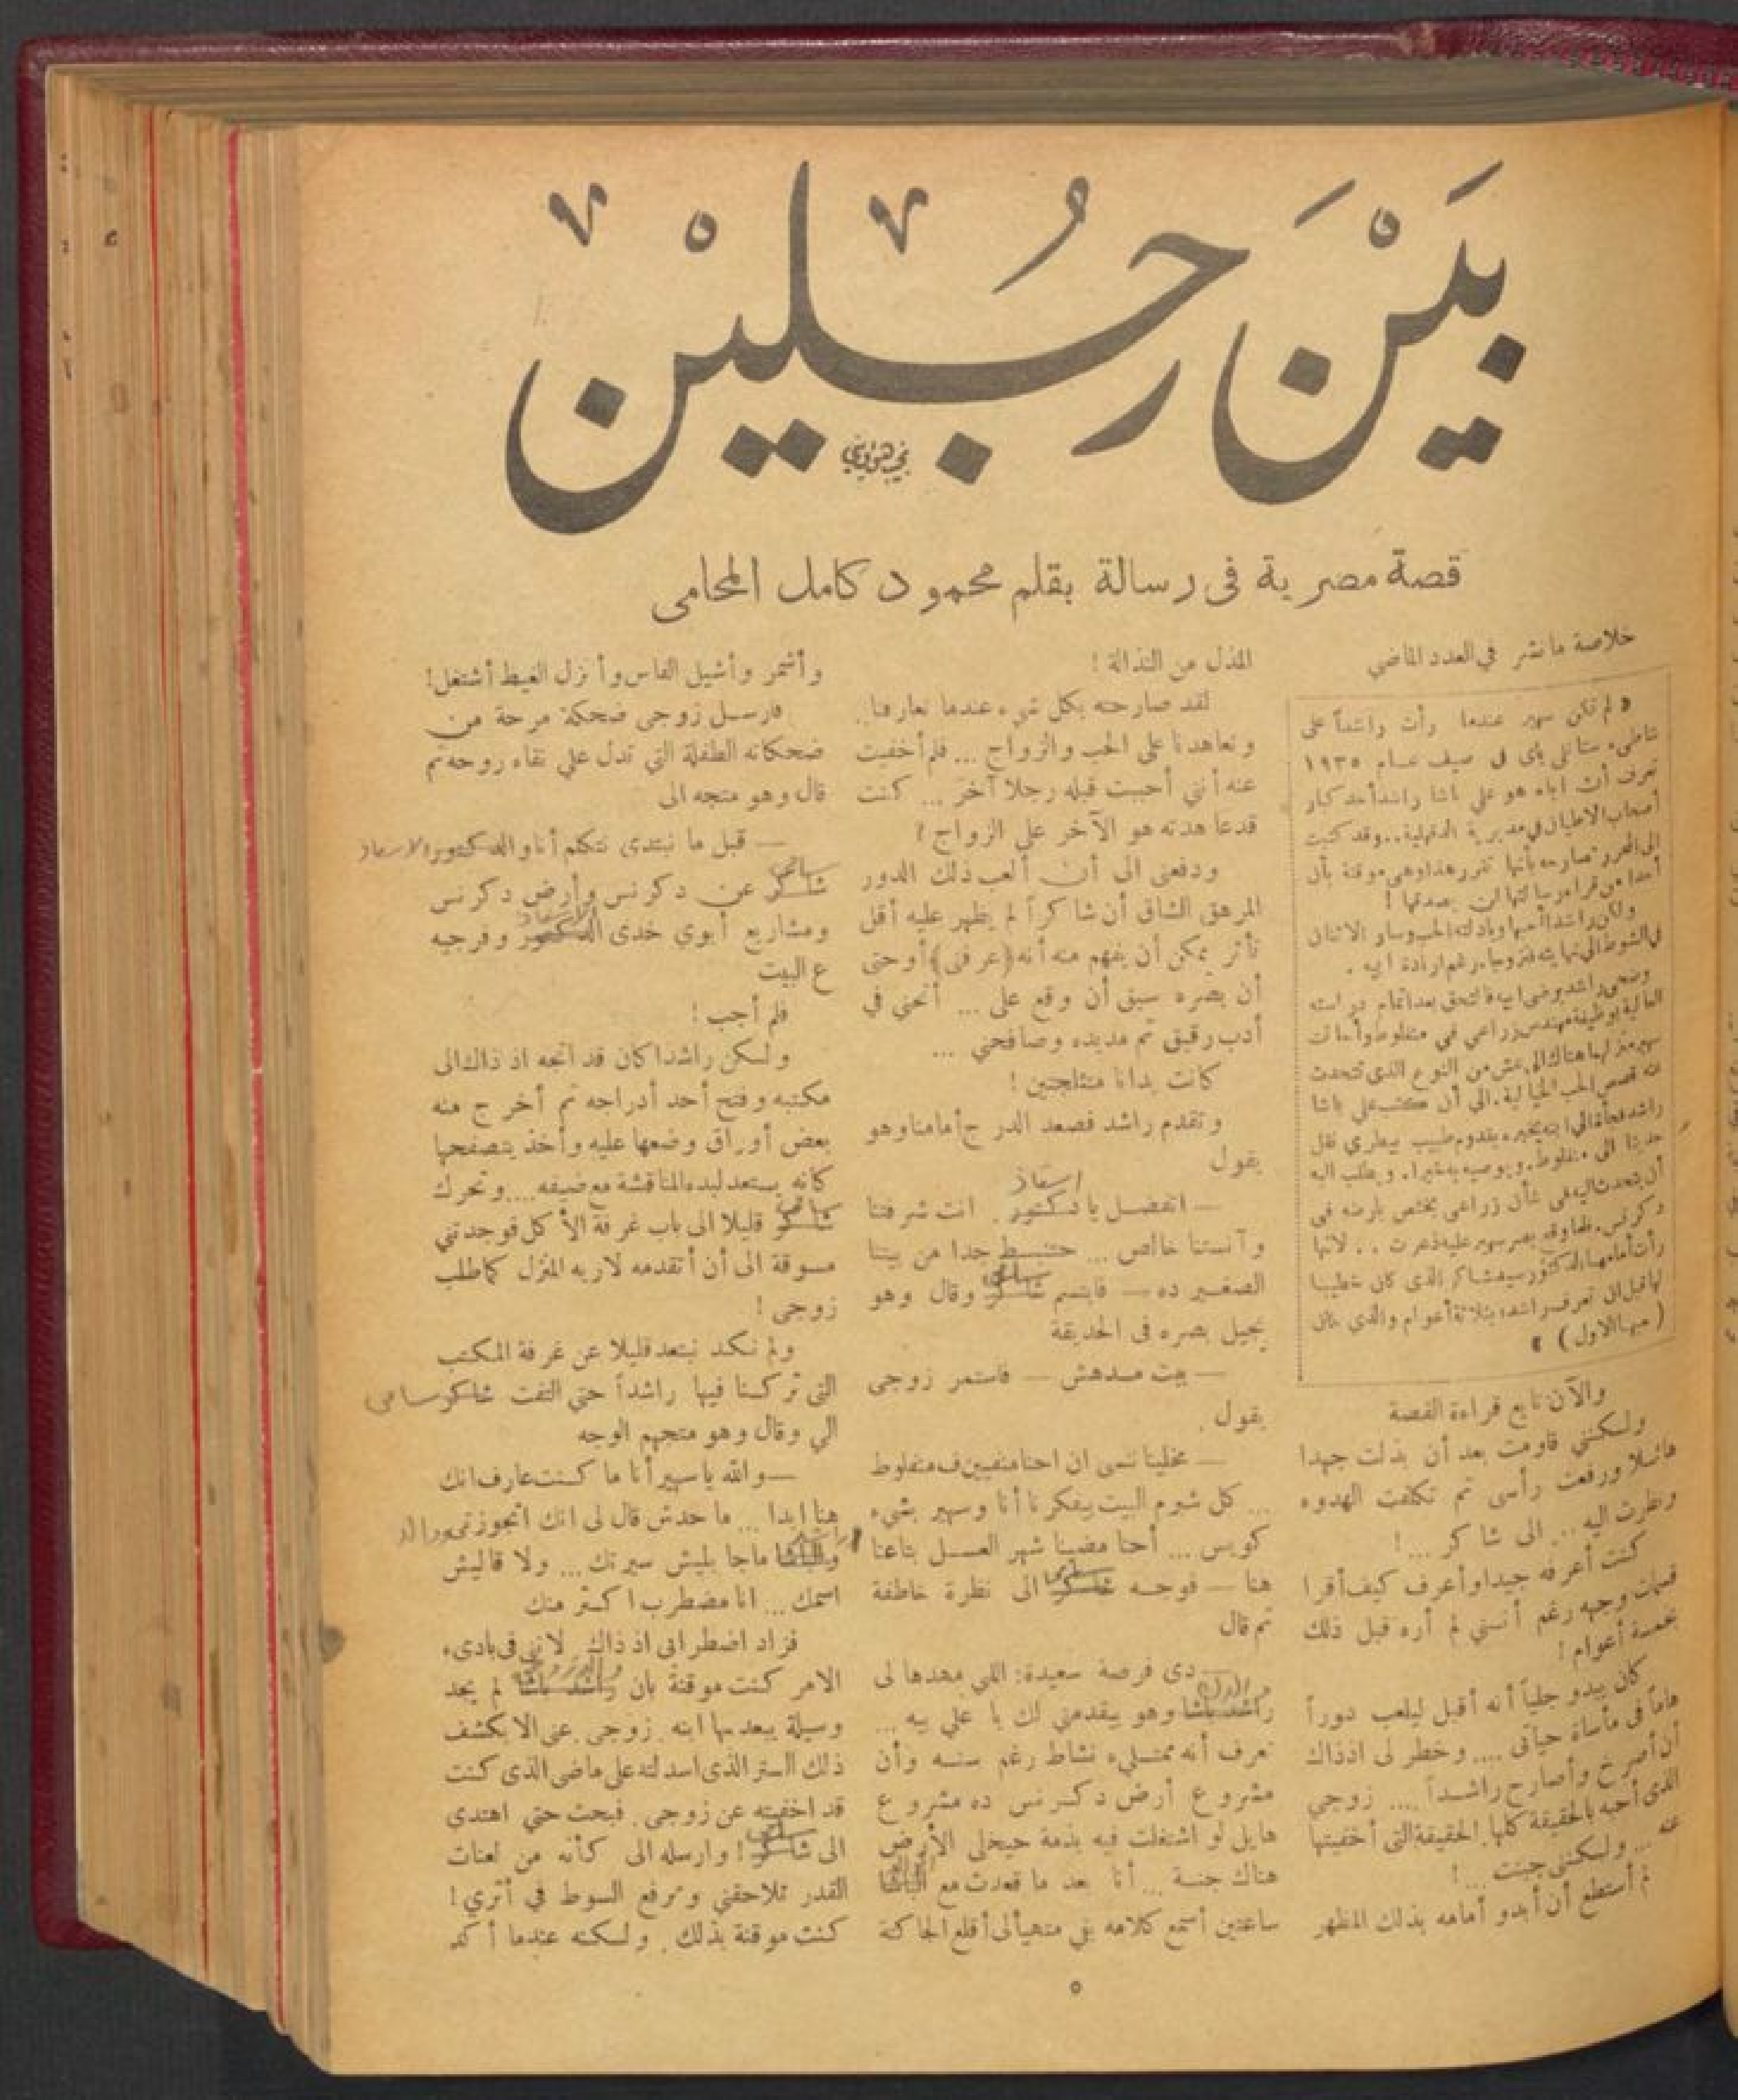 بَيْنَ رَجُلَيْن
قصة مصرية فى رسالة بقلم محمود كامل المحامى
خلاصة ما نشر في العدد الماضي
« لم تكن سهير عندما رأت راشداً على
شاطىء ستانلى باى فى صيف عام ١٩٣٥
تعرف أن اباه هو على باشا راشد أحد كبار
أصحاب الاطيان فى مديرية الدقهلية.. وقد كتبت
الى المحرر تصارحه بأنها تقرر هذا وهى موقنة بأن
أحدا من قراء رسالتها لن يصدقها !
ولكن راشدا أحبها وبادلته الحب وسار الاثنان
فى الشوط الى نهايته فتزوجا. رغم ارادة ابيه .
وضحى راشد برضى ابيه فالتحق بعد اتمام دراسته
العالية بوظيفة مهندس زراعى فى منفلوط وأحالت
سهير منزلهما هناك الى عش من النوع الذى تتحدث
عنه قصص الحب الخيالية. الى أن كتب على باشا
راشد فجأة الى ابنه يخبره بقدوم طبيب بيطرى نقل
حديثا الى منفلوط. ويوصيه به خيرا. ويطلب اليه
أن يتحدث اليه فى شأن زراعى يختص بأرضه فى
دكرنس. فلما وقع بصر سهير عليه ذعرت .. لانها
رأت أمامها الدكتور سيد شاكر الذى كان خطيبا
لها قبل ان تعرف راشد بثلاثة أعوام والذى كان
( حبها الاول ) »
والآن تابع قراءة القصة
ولكننى قاومت بعد أن بذلت جهدا
هائلا ورفعت رأسى ثم تكلفت الهدوء
ونظرت اليه .. الى شاكر ... !
كنت أعرفه جيدا وأعرف كيف أقرا
قسمات وجهه رغم أننى لم أره قبل ذلك
بخمسة أعوام !
كان يبدو جلياً أنه أقبل ليلعب دوراً
هاماً فى مأساة حياتى .... وخطر لى اذذاك
أن أصرخ وأصارح راشداً .... زوجي
الذى أحبه بالحقيقة كلها. الحقيقة التى أخفيتها
عنه ... ولكننى جبنت ... !
لم أستطع أن أبدو أمامه بذلك المظهر
المذل من النذالة !
لقد صارحته بكل شىء عندما تعارفنا.
وتعاهدنا على الحب والزواج ... فلم أخفيت
عنه أنني أحببت قبله رجلا آخر ... كنت
قد عاهدته هو الآخر على الزواج ؟
ودفعنى الى أن ألعب ذلك الدور
المرهق الشاق أن شاكراً لم يظهر عليه أقل
تأثر يمكن أن يفهم منه أنه (عرفنى) أو حتى
أن بصره سبق أن وقع على ... أنحنى في
أدب رقيق ثم مد يده وصافحني ...
كانت يدانا مثلجتين !
وتقدم راشد فصعد الدرج أمامنا وهو
يقول
استاذ
— اتفضل يا دكتور . انت شرفتنا
وآنستنا خالص ... حتنبسط جدا من بيتنا
سامى
الصغير ده — فابتسم شاكر وقال وهو
يجيل بصره فى الحديقة
— بيت مدهش — فاستمر زوجى
يقول
— مخلينا ننسى ان احنا منفيين ف منفلوط
... كل شبر م البيت بيفكرنا أنا وسهير بشىء
كويس ... أحنا مضينا شهر العسل بتاعنا
سامى
هنا — فوجه شاكر الى نظرة خاطفة
ثم قال
— دى فرصة سعيدة: اللى مهدها لى
والدك
راشد باشا وهو بيقدمني لك يا علي بيه ...
تعرف أنه ممتلىء نشاط رغم سنه وأن
مشروع أرض دكرنس ده مشروع
هايل لو اشتغلت فيه بذمة حيخلى الأرض
هناك جنة ... أنا بعد ما قعدت مع الباشا
ساعتين أسمع كلامه بقى متهيألى أقلع الجاكتة
وأشمر وأشيل الفاس وأنزل الغيط أشتغل!
فارسل زوجى ضحكة مرحة من
ضحكاته الطفلة التي تدل على نقاء روحه ثم
قال وهو متجه الى
— قبل ما نبتدى نتكلم أنا والدكتور الاستاذ
سامى
شاكر عن دكرنس وأرض دكرنس
الاستاذ
ومشاريع أبوي خدى الدكتور وفرجيه
ع البيت
فلم أجب !
ولكن راشدا كان قد اتجه اذ ذاك الى
مكتبه وفتح أحد أدراجه ثم أخرج منه
بعض أوراق وضعها عليه وأخذ يتصفحها
كأنه يستعد لبدء المناقشة مع ضيفه .... وتحرك
سامى
شاكر قليلا الى باب غرفة الأكل فوجدتني
مسوقة الى أن أتقدمه لاريه المنزل كما طلب
زوجى !
ولم نكد نبتعد قليلا عن غرفة المكتب
التى تركنا فيها راشداً حتى التفت شاكر سامى
الي وقال وهو متجهم الوجه
— والله يا سهير أنا ما كنت عارف انك
هنا ابدا ... ما حدش قال لى انك اتجوزتى ووالد
راشد
والباشا ما جابليش سيرتك ... ولا قاليش
اسمك ... انا مضطرب اكثر منك
فزاد اضطرابى اذ ذاك لاننى فى بادىء
والد زوجى
الامر كنت موقنة بان راشد باشا لم يجد
وسيلة يبعد بها ابنه. زوجى. عنى الا بكشف
ذلك الستر الذى اسدلته على ماضى الذى كنت
قد اخفيته عن زوجى . فبحث حتى اهتدى
سامى
الى شاكر ! وارسله الى كأنه من لعنات
القدر تلاحقنى وترفع السوط في أثري !
كنت موقنة بذلك . ولكنه عندما أكد
٥